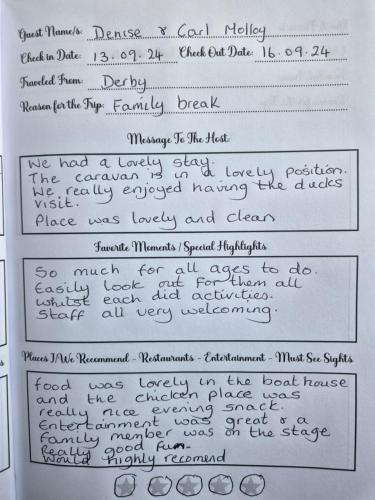 Guest Name/s: Denise & Carl Molloy
Check in Date: 13.09.24 Check Out Date: 16.09.24
Traveled From: Derby
Reason for the Trip: Family break
Message To The Host
We had a lovely stay.
The caravan is in a lovely position.
We really enjoyed having the ducks
visit.
Place was lovely and clean
Favorite Moments / Special Highlights
So much for all ages to do.
Easily look out for them all
whilst each did activities.
Staff all very welcoming.
Places I/We Recommend - Restaurants - Entertainment - Must See Sights
food was lovely in the boathouse
and the chicken place was
really nice evening snack.
Entertainment was great & a
family member was on the stage
Really good fun.
would highly recomend